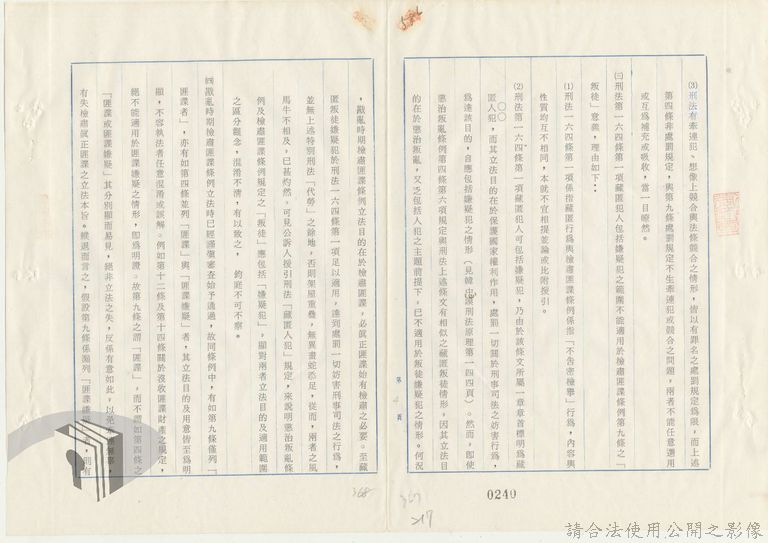 ⑶刑法有牽連犯、想像上競合與法條競合之情形，皆以有罪名之處罰規定爲限，而上述
第四條非處罰規定，與第九條處罰規定不生牽連犯或競合之問題，兩者不能任意選用
或互爲補充或吸收，當一目瞭然。
㈢刑法第一六四條第一項藏匿犯人包括嫌疑犯之範圍不能適用於檢肅匪諜條例第九條之「
叛徒」意義，理由如下：
⑴刑法一六四條第一項係指藏匿行爲與檢肅匪諜條例係指「不告密檢舉」行爲，內容與
性質均互不相同，本就不宜相提並論或比附援引。
⑵刑法第一六四條第一項藏匿犯人可包括嫌疑犯，乃由於該條文所屬一章章首標明爲藏
匿人犯，而其立法目的在於保護國家權利作用，處罰一切關於刑事司法之妨害行爲，
爲達該目的，自應包括嫌疑犯之情形（見韓忠謨刑法原理第一四四頁）。然而，即使
懲治叛亂條例第四條第六項規定與刑法上述條文有相似之藏匿叛徒情形，因其立法目
的在於懲治叛亂，又乏包括人犯之主題前提下，已不適用於叛徒嫌疑犯之情形。何況
第 頁
0240
367
217
，戡亂時期檢肅匪諜條例立法目的在於檢肅匪諜，必眞正匪諜始有檢肅之必要。至藏
匿叛徒嫌疑犯於刑法一六四條第一項足以適用，達到處罰一切妨害刑事司法之行爲，
並無上述特別刑法「代勞」之餘地，否則架屋重疊，無異畫蛇添足，從而，兩者之風
馬牛不相及，已甚灼然。可見公訴人援引刑法「藏匿人犯」規定，來說明懲治叛亂條
例及檢肅匪諜條例規定之「叛徒」應包括「嫌疑犯」，顯對兩者立法目的及適用範圍
之區分觀念，混淆不清，有以致之， 鈞庭不可不察。
㈣戡亂時期檢肅匪諜條例立法時已經謹愼審查始予通過，故同條例中，有如第九條僅列「
匪諜者」，亦有如第四條並列「匪諜」與「匪諜嫌疑」者，其立法目的及用意皆至爲明
顯，不容執法者任意混淆或誤解。例如第十二條及第十四條關於沒收匪諜財產之規定，
絕不能適用於匪諜嫌疑之情形，即爲明證。故第九條之謂「匪諜」，而不謂如第四條之
「匪諜或匪諜嫌疑」其分別顯而易見，絕非立法之失，反係有意如此，以免
有失檢肅眞正匪諜之立法本旨。縱退而言之，假設第九條係漏列「匪諜嫌疑」者，則有
368
請合法使用公開之影像